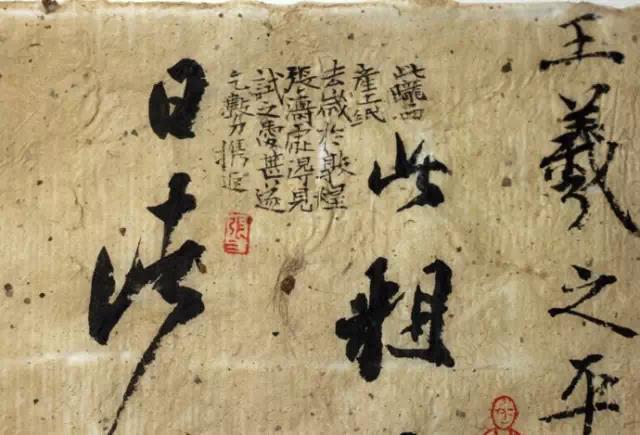 王羲之平
此粗
此隴西
產土紙
去歲於敦煌
張濤處得見
試之愛甚遂
乞數刀攜返
日諸